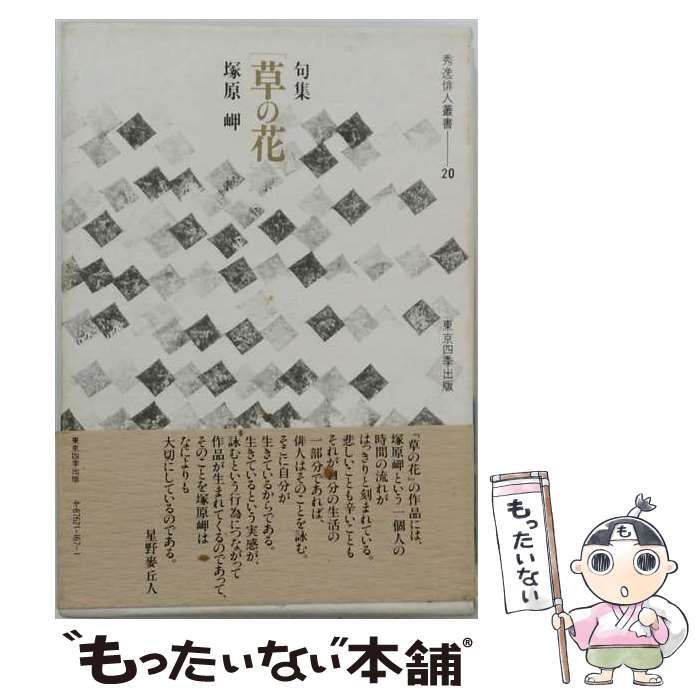 秀逸俳人叢書──20
句集
「草の花」
塚原 岬
東京四季出版
『草の花』の作品には、
塚原岬という一個人の
時間の流れが
はっきりと刻まれている。
悲しいことも辛いことも
それが自分の生活の
一部分であれば、
俳人はそのことを詠む。
そこに自分が
生きているからである。
生きているという実感が、
詠むという行為につながって
作品が生まれてくるのであって、
そのことを塚原岬は
なによりも
大切にしているのである。
星野麥丘人
東京四季出版
もったいない
"もったいない本舗"